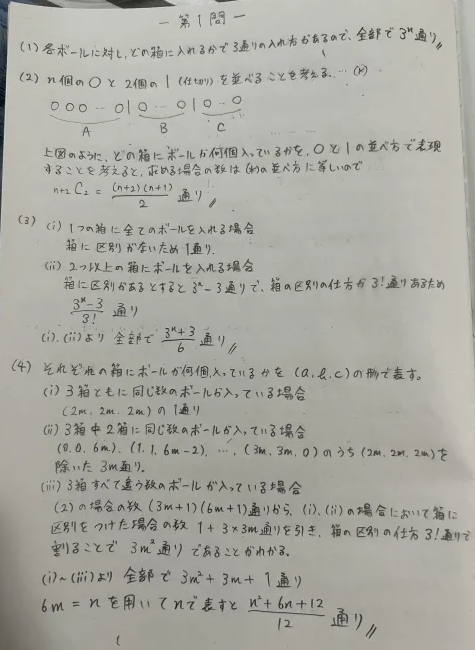 — 第1問 —
(1) 各ボールに対し、どの箱に入れるかで3通りの入れ方があるので、全部で 3ⁿ通り
(2) n個の〇と2個の|(仕切り)を並べることを考える。… (*)
〇〇〇…〇|〇…〇|〇…〇
A B C
上図のように、どの箱にボールが何個入っているかを、〇と|の並べ方で表現
することを考えると、求める場合の数は(*)の並べ方に等しいので
n+2C2 = (n+2)(n+1)/2 通り
(3) (i) 1つの箱に全てのボールを入れる場合
箱に区別がないため1通り.
(ii) 2つ以上の箱にボールを入れる場合
箱に区別があるとすると3ⁿ-3通りで、箱の区別の仕方が3!通りあるため
(3ⁿ-3)/3! 通り
(i),(ii)より 全部で (3ⁿ+3)/6 通り
(4) それぞれの箱にボールが何個入っているかを (a,b,c)の形で表す。
(i) 3箱ともに同じ数のボールが入っている場合
(2m, 2m, 2m) の1通り
(ii) 3箱中2箱に同じ数のボールが入っている場合
(0,0,6m), (1,1,6m-2), …, (3m,3m,0)のうち(2m,2m,2m)を
除いた 3m通り。
(iii) 3箱すべて違う数のボールが入っている場合
(2)の場合の数 (3m+1)(6m+1)通りから、(i),(ii)の場合において箱に
区別をつけた場合の数 1+3×3m通りを引き、箱の区別の仕方3!通りで
割ることで 3m²通りであることがわかる。
(i)~(iii)より 全部で 3m²+3m+1通り
6m=nを用いてnで表すと (n²+6n+12)/12 通り